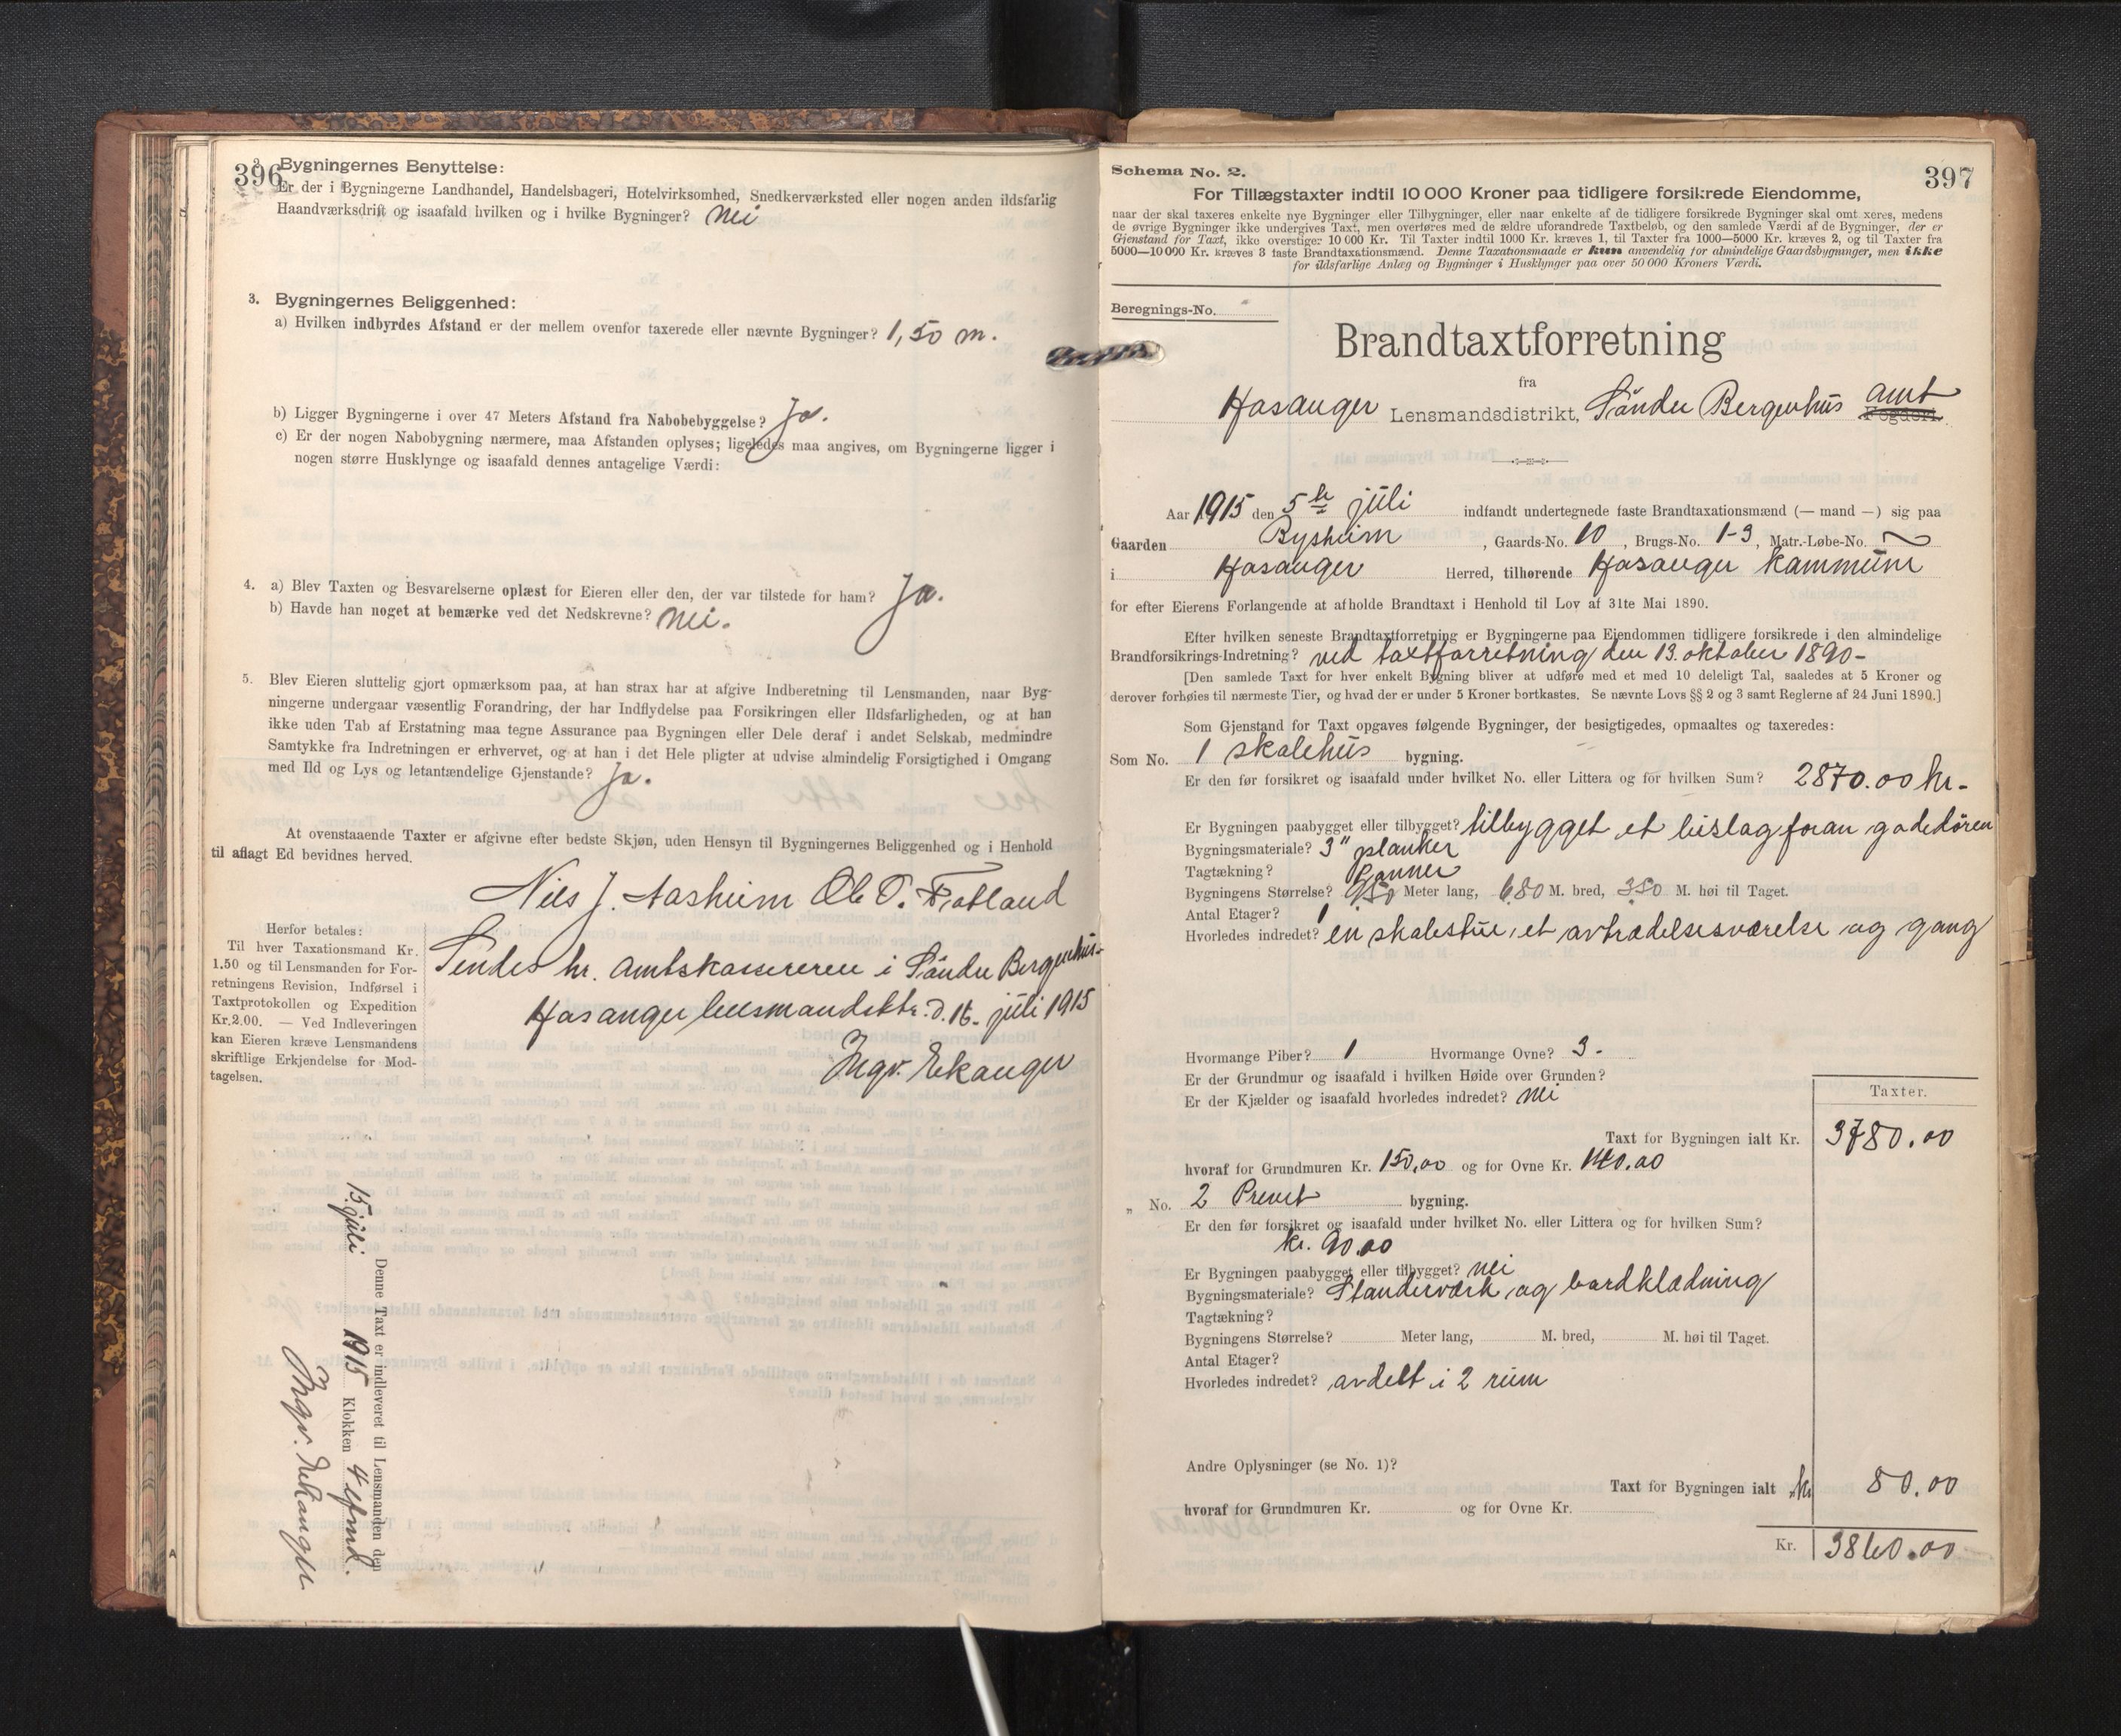 396
3 Bygningernes Benyttelse:
Er der i Bygningerne Landhandel, Handelsbageri, Hotelvirksomhed, Snedkerværksted eller nogen anden ildsfarlig
Haandværksdrift og isaafald hvilken og i hvilke Bygninger? Nei
3. Bygningernes Beliggenhed:
a) Hvilken indbyrdes Afstand er der mellem ovenfor taxerede eller nævnte Bygninger? 1,50 m.
b) Ligger Bygningerne i over 47 Meters Afstand fra Nabobebyggelse? Ja.
c) Er der nogen Nabobygning nærmere, maa Afstanden oplyses; ligeledes maa angives, om Bygningerne ligger i
nogen større Husklynge og isaafald dennes antagelige Værdi:
4. a) Blev Taxten og Besvarelserne oplæst for Eieren eller den, der var tilstede for ham? Ja.
b) Havde han noget at bemærke ved det Nedskrevne? Nei.
5. Blev Eieren sluttelig gjort opmærksom paa, at han strax har at afgive Indberetning til Lensmanden, naar Byg-
ningerne undergaar væsentlig Forandring, der har Indflydelse paa Forsikringen eller Ildsfarligheden, og at han
ikke uden Tab af Erstatning maa tegne Assurance paa Bygningen eller Dele deraf i andet Selskab, medmindre
Samtykke fra Indretningen er erhvervet, og at han i det Hele pligter at udvise almindelig Forsigtighed i Omgang
med Ild og Lys og letantændelige Gjenstande? Ja.
At ovenstaaende Taxter er afgivne efter bedste Skjøn, uden Hensyn til Bygningernes Beliggenhed og i Henhold
til aflagt Ed bevidnes herved.
Nils J. Aasheim Ole T. Fotland
Herfor betales:
Til hver Taxationsmand Kr.
1.50 og til Lensmanden for For-
retningens Revision, Indførsel i
Taxtprotokollen og Expedition
Kr.2.00. — Ved Indleveringen
kan Eieren kræve Lensmandens
skriftlige Erkjendelse for Mod-
tagelsen.
Sendes hr. Amtskassereren i Søndre Bergenhus.
Hosanger lensmandsktr. d. 16. juli 1915
Ingv. Eikanger
Denne Taxt er indleveret til Lensmanden den
15. juli 1915 Klokken 4 efmd.
Ingv. Eikanger
397
Schema No. 2.
For Tillægstaxter indtil 10 000 Kroner paa tidligere forsikrede Eiendomme,
naar der skal taxeres enkelte nye Bygninger eller Tilbygninger, eller naar enkelte af de tidligere forsikrede Bygninger skal omt xeres, medens
de øvrige Bygninger ikke undergives Taxt, men overføres med de ældre uforandrede Taxtbeløb, og den samlede Værdi af de Bygninger, der er
Gjenstand for Taxt, ikke overstiger 10 000 Kr. Til Taxter indtil 1000 Kr. kræves 1, til Taxter fra 1000—5000 Kr. kræves 2, og til Taxter fra
5000—10 000 Kr. kræves 3 faste Brandtaxationsmænd. Denne Taxationsmaade er kun anvendelig for almindelige Gaardsbygninger, men ikke
for ildsfarlige Anlæg og Bygninger i Husklynger paa over 50 000 Kroners Værdi.
Beregnings-No.
Brandtaxtforretning
fra
Hosanger Lensmandsdistrikt, Søndre Bergenhus amt Fogderi.
Aar 1915 den 5te juli indfandt undertegnede faste Brandtaxationsmænd (— mand —) sig paa
Gaarden Bysheim, Gaards-No. 10, Brugs-No. 1-3, Matr.-Løbe-No. ~
i Hosanger Herred, tilhørende Hosanger kommune
for efter Eierens Forlangende at afholde Brandtaxt i Henhold til Lov af 31te Mai 1890.
Efter hvilken seneste Brandtaxtforretning er Bygningerne paa Eiendommen tidligere forsikrede i den almindelige
Brandforsikrings-Indretning? ved taxtforretning den 13. oktober 1890-
[Den samlede Taxt for hver enkelt Bygning bliver at udføre med et med 10 deleligt Tal, saaledes at 5 Kroner og
derover forhøies til nærmeste Tier, og hvad der er under 5 Kroner bortkastes. Se nævnte Lovs §§ 2 og 3 samt Reglerne af 24 Juni 1890.]
Som Gjenstand for Taxt opgaves følgende Bygninger, der besigtigedes, opmaaltes og taxeredes:
Som No. 1 skolehus bygning.
Er den før forsikret og isaafald under hvilket No. eller Littera og for hvilken Sum? 2870.00 kr.
Er Bygningen paabygget eller tilbygget? tilbygget et bislag foran gadedøren
Bygningsmateriale? 3" planker
Tagtækning? Panner
Bygningens Størrelse? 9.50 Meter lang, 6.80 M. bred, 3.50 M. høi til Taget.
Antal Etager? 1
Hvorledes indredet? en skolestue, et avtrædelsesværelse og gang
Hvormange Piber? 1 Hvormange Ovne? 3.
Er der Grundmur og isaafald i hvilken Høide over Grunden?
Er der Kjælder og isaafald hvorledes indredet? Nei
Taxter.
Taxt for Bygningen ialt Kr. 3780.00
hvoraf for Grundmuren Kr. 150,00 og for Ovne Kr. 140.00
„ No. 2 Prevet bygning.
Er den før forsikret og isaafald under hvilket No. eller Littera og for hvilken Sum?
kr. 90.00
Er Bygningen paabygget eller tilbygget? nei
Bygningsmateriale? Standerværk og bordklædning
Tagtækning?
Bygningens Størrelse? Meter lang, M. bred, M. høi til Taget.
Antal Etager?
Hvorledes indredet? avdelt i 2 rum
Andre Oplysninger (se No. 1)?
Taxt for Bygningen ialt kr 80.00
hvoraf for Grundmuren Kr. og for Ovne Kr.
Kr. 3860.00